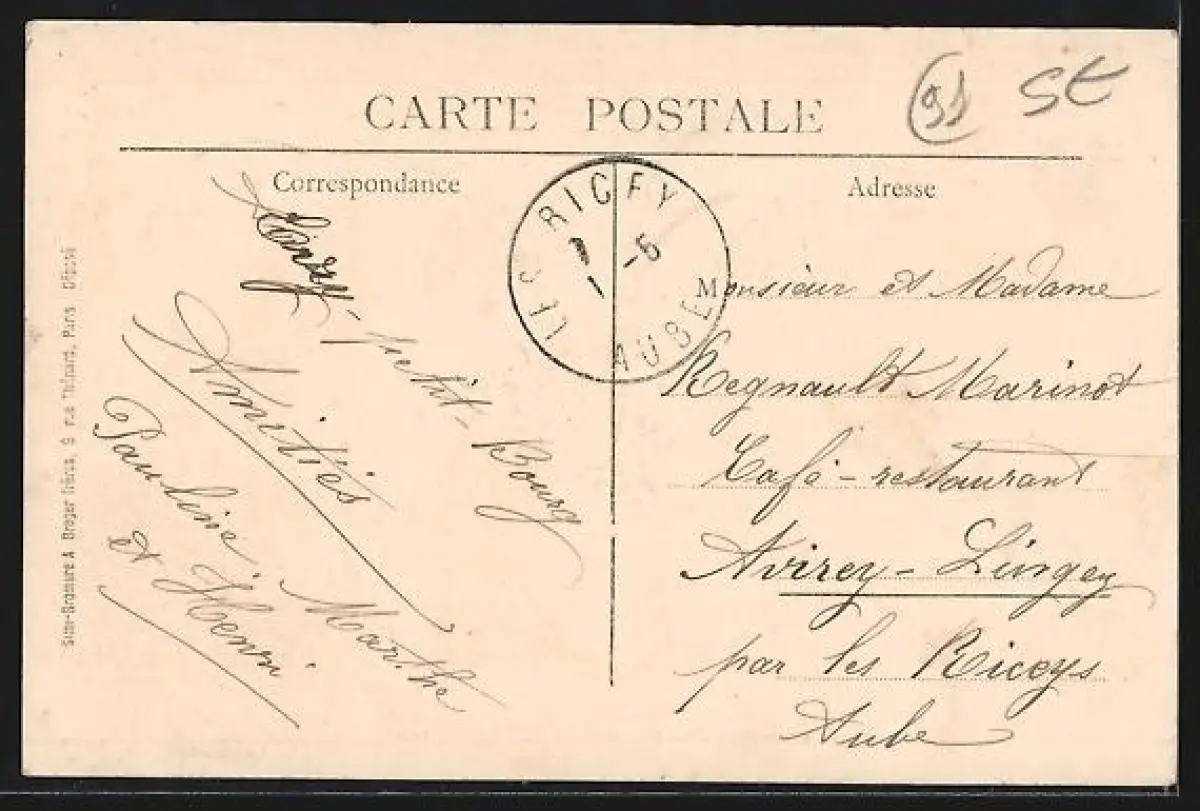 CARTE POSTALE
91 St
Correspondance
Adresse
LES RICEY
1 -6
AUBE
Evry-petit-Bourg
Amitiés
Pauline, Marthe
et Henri
Monsieur et Madame
Regnault Marinot
Café-restaurant
Avirey-Lingey
par les Riceys
Aube
A Breger frères, 9 rue Thénard, Paris Déposé